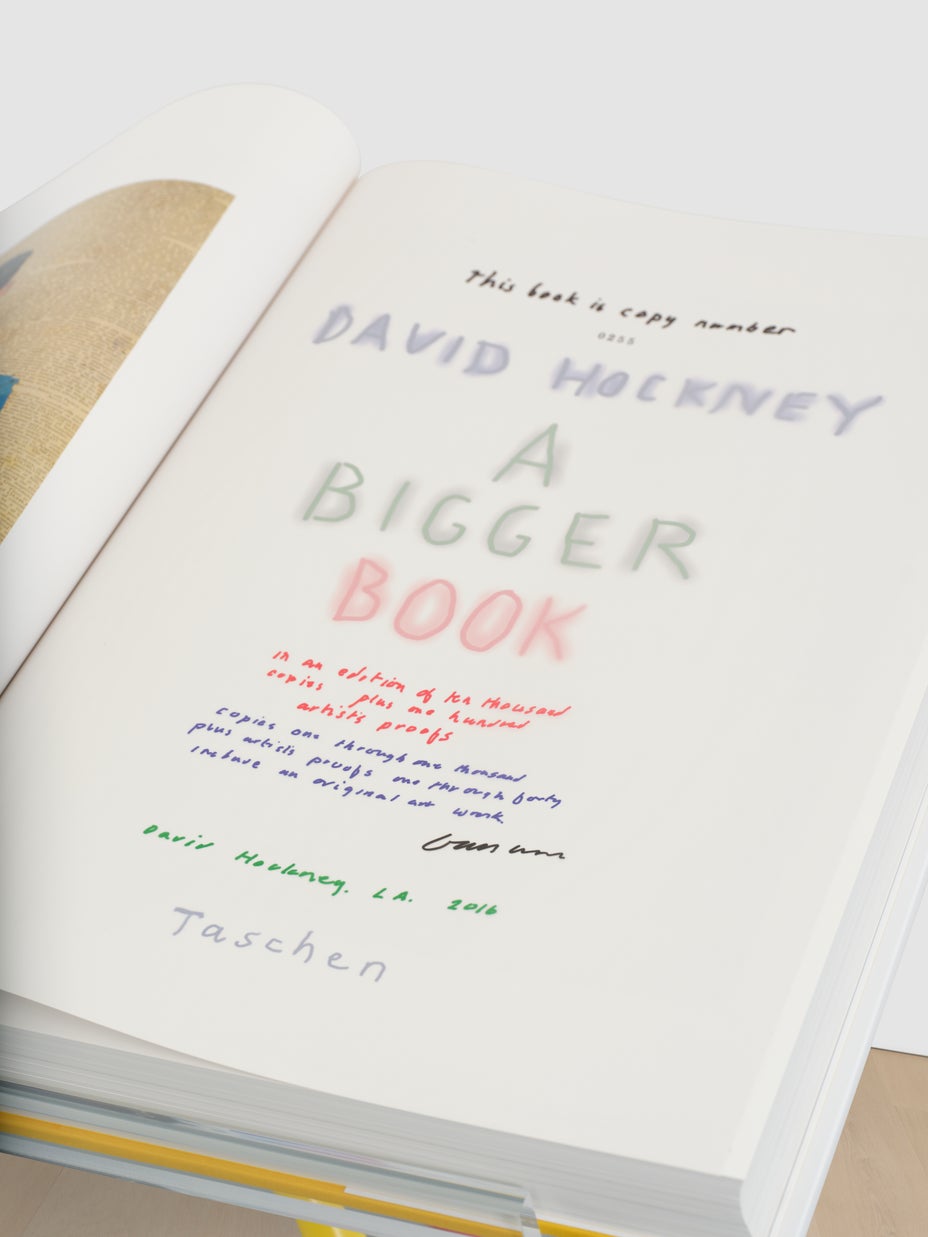 This book is copy number
0255
DAVID HOCKNEY
A
BIGGER
BOOK
in an edition of ten thousand
copies plus one hundred
artist's proofs
copies one through one thousand
plus artist's proofs one through forty
include an original art work
David Hockney. LA. 2016
Taschen